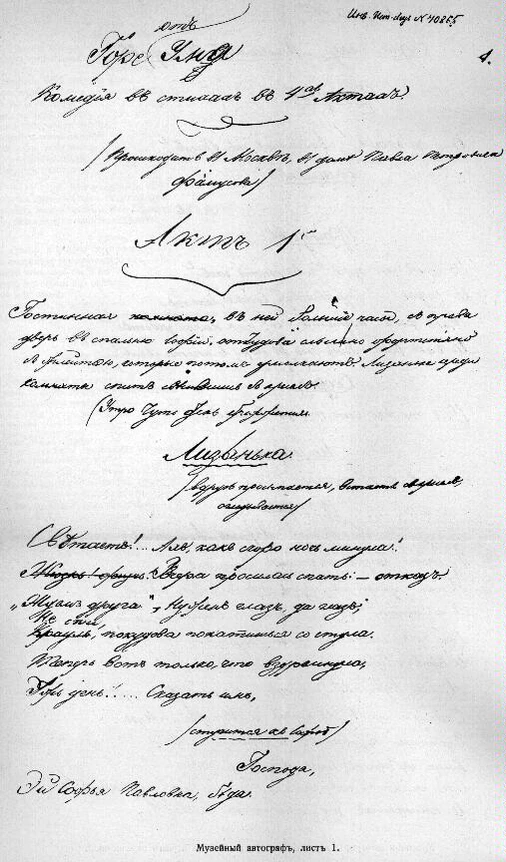 Инв. Ист. муз № 40855
1.
Горе отъ Ума
Комедія въ стихахъ въ 4хъ Актахъ.
(Происходитъ въ Москвѣ, въ домѣ Павла Петровича
Фамусова)
Актъ 1й
Гостинная комната, въ ней большіе часы, съ права
дверь въ спальню Софіи, откудова слышно фортепіано
съ флейтою, которыя потомъ умолкаютъ. Лизанька среди
комнаты спитъ свѣсившись съ креселъ.
(Утро чуть день брежжется
Лизанька
(вдругъ просыпается, встаетъ съ креселъ,
оглядывается)
Свѣтаетъ!... Ахъ, какъ скоро ночь минула!
Вчера просилась спать: — отказъ.
„Ждемъ друга“, Нуженъ глазъ, да глазъ;
Не спи, покудова покатишься со стула.
Теперь вотъ только, что вздремнула,
Ужъ день!.... Сказать имъ,
(стучится къ Софіѣ)
Господа,
Эй Софья Павловна, бѣда.
Музейный автографъ, листъ 1.